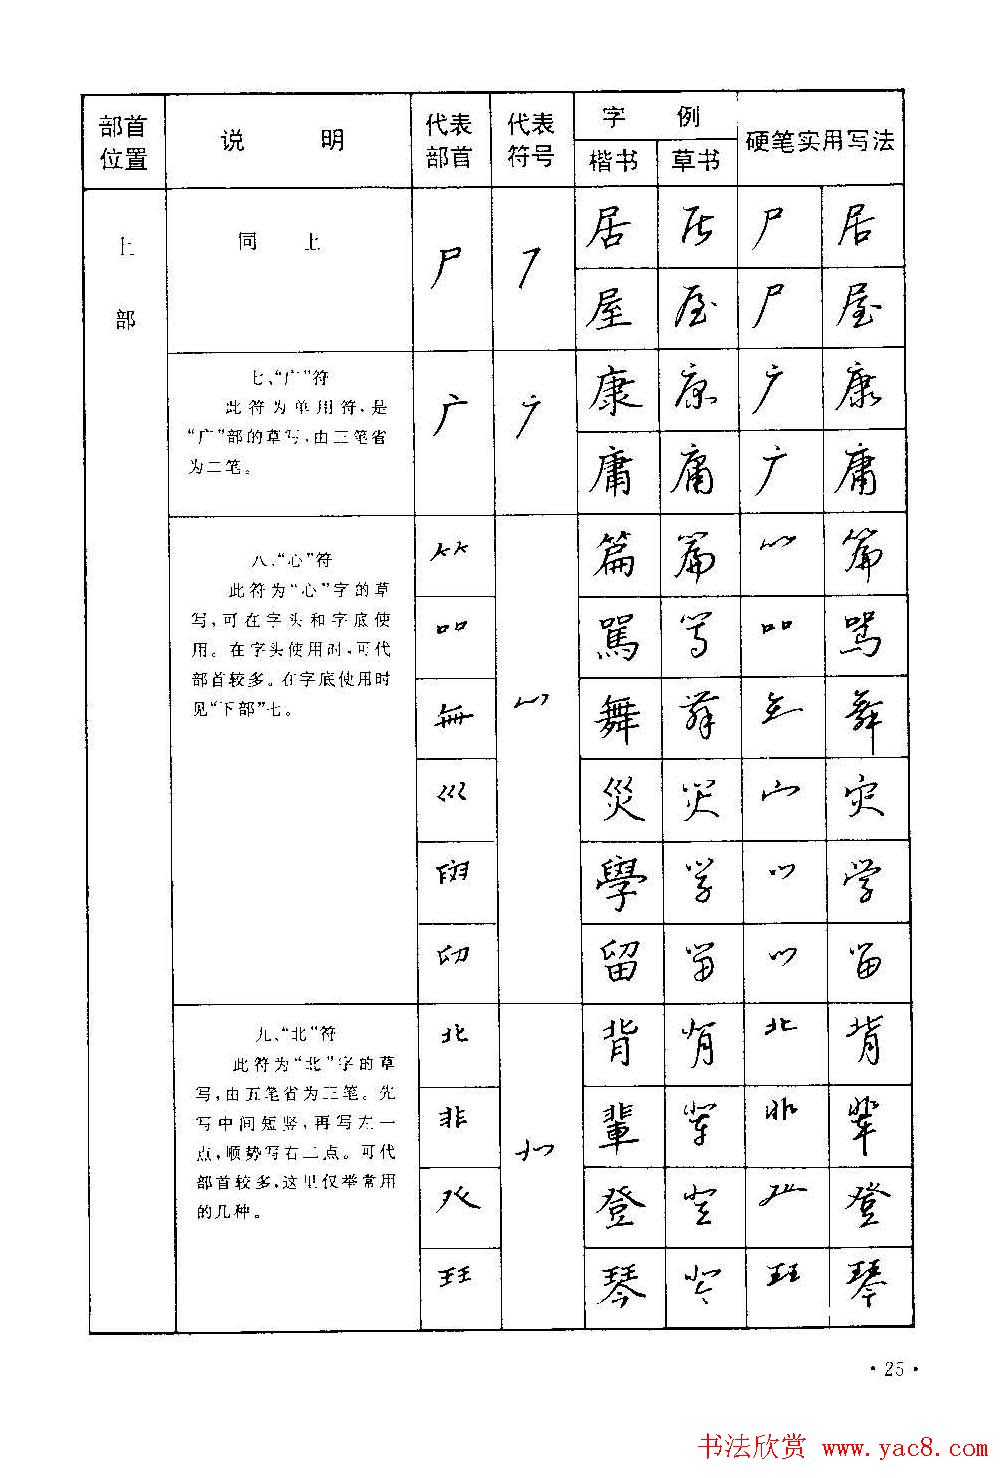 部首位置 说 明 代表部首 代表符号 字 例 硬笔实用写法
楷书 草书
上部
同 上 尸 居 居 尸 居
屋 屋 尸 屋
七、“广”符
此符为单用符,是
“广”部的草写,由三笔省
为二笔。
广 康 康 广 康
庸 庸 广 庸
八、“心”符
此符为“心”字的草
写,可在字头和字底使
用。在字头使用时,可代
部首较多。在字底使用时
见“下部”七。
篇 篇 篇
吅 駡 骂 吅 骂
舞 舞 舞
巛 災 灾 灾
學 学 学
留 留 留
九、“北”符
此符为“北”字的草
写,由五笔省为三笔。先
写中间短竖,再写左一
点,顺势写右二点。可代
部首较多,这里仅举常用
的几种。
北 背 背 北 背
非 輩 辈 非 辈
癶 登 登 癶 登
玨 琴 琴 玨 琴
·25·
书法欣赏 www.yac8.com